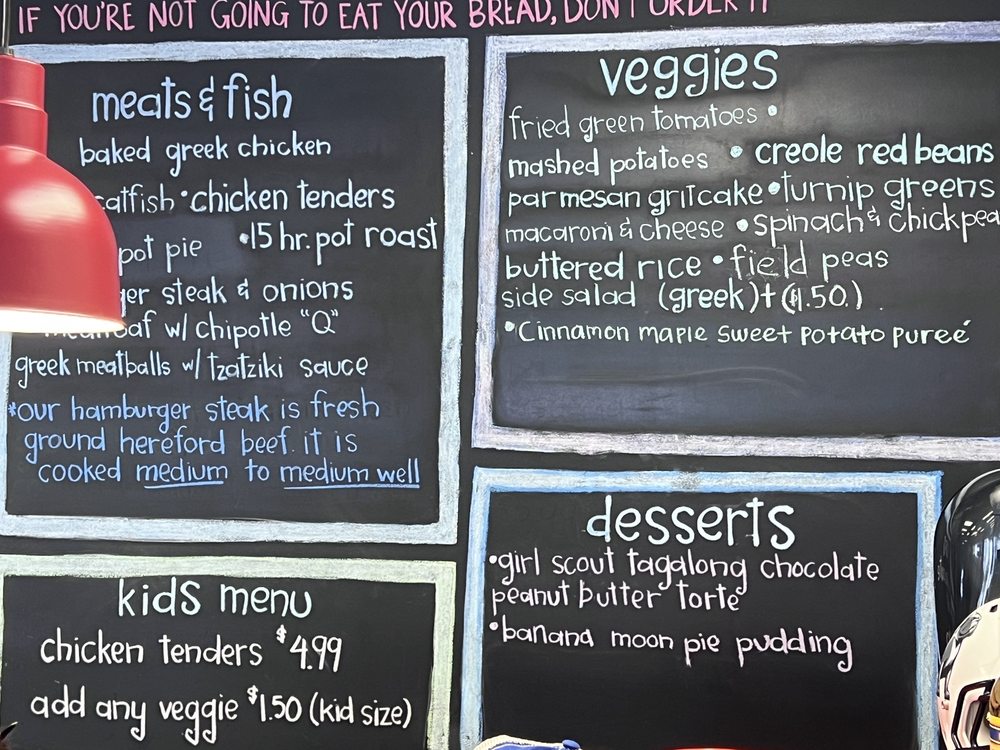 IF YOU'RE NOT GOING TO EAT YOUR BREAD, DON'T ORDER IT
meats & fish
baked greek chicken
catfish • chicken tenders
pot pie • 15 hr. pot roast
steak & onions
w/ chipotle "Q"
greek meatballs w/ tzatziki sauce
*our hamburger steak is fresh
ground hereford beef. it is
cooked medium to medium well
veggies
fried green tomatoes •
mashed potatoes • creole red beans
parmesan gritcake • turnip greens
macaroni & cheese • spinach & chickpea
buttered rice • field peas
side salad (greek) + ($1.50)
• Cinnamon maple sweet potato pureé
kids menu
chicken tenders $4.99
add any veggie $1.50 (kid size)
desserts
• girl scout tagalong chocolate
peanut butter torte
• banana moon pie pudding